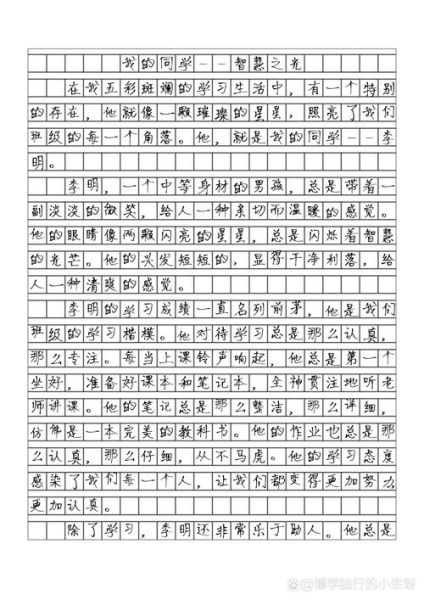 我的同学--智慧之光
在我五彩斑斓的学习生活中，有一个特别
的存在，他就像一颗璀璨的星星，照亮了我们
班级的每一个角落。他，就是我的同学--李
明。
李明，一个中等身材的男孩，总是带着一
副淡淡的微笑，给人一种亲切而温暖的感觉。
他的眼睛像两颗闪亮的星星，总是闪烁着智慧
的光芒。他的头发短短的，显得干净利落，给
人一种清爽的感觉。
李明的学习成绩一直名列前茅，他是我们
班级的学习楷模。他对待学习总是那么认真，
那么专注。每当上课铃声响起，他总是第一个
坐好，准备好课本和笔记本，全神贯注地听老
师讲课。他的笔记总是那么整洁，那么详细，
仿佛是一本完美的教科书。他的作业也总是那
么认真，那么仔细，从不马虎。他的学习态度
感染了我们每一个人，让我们都变得更加努力
更加认真。
除了学习，李明还非常乐于助人。他总是
@博学独行的小生呀